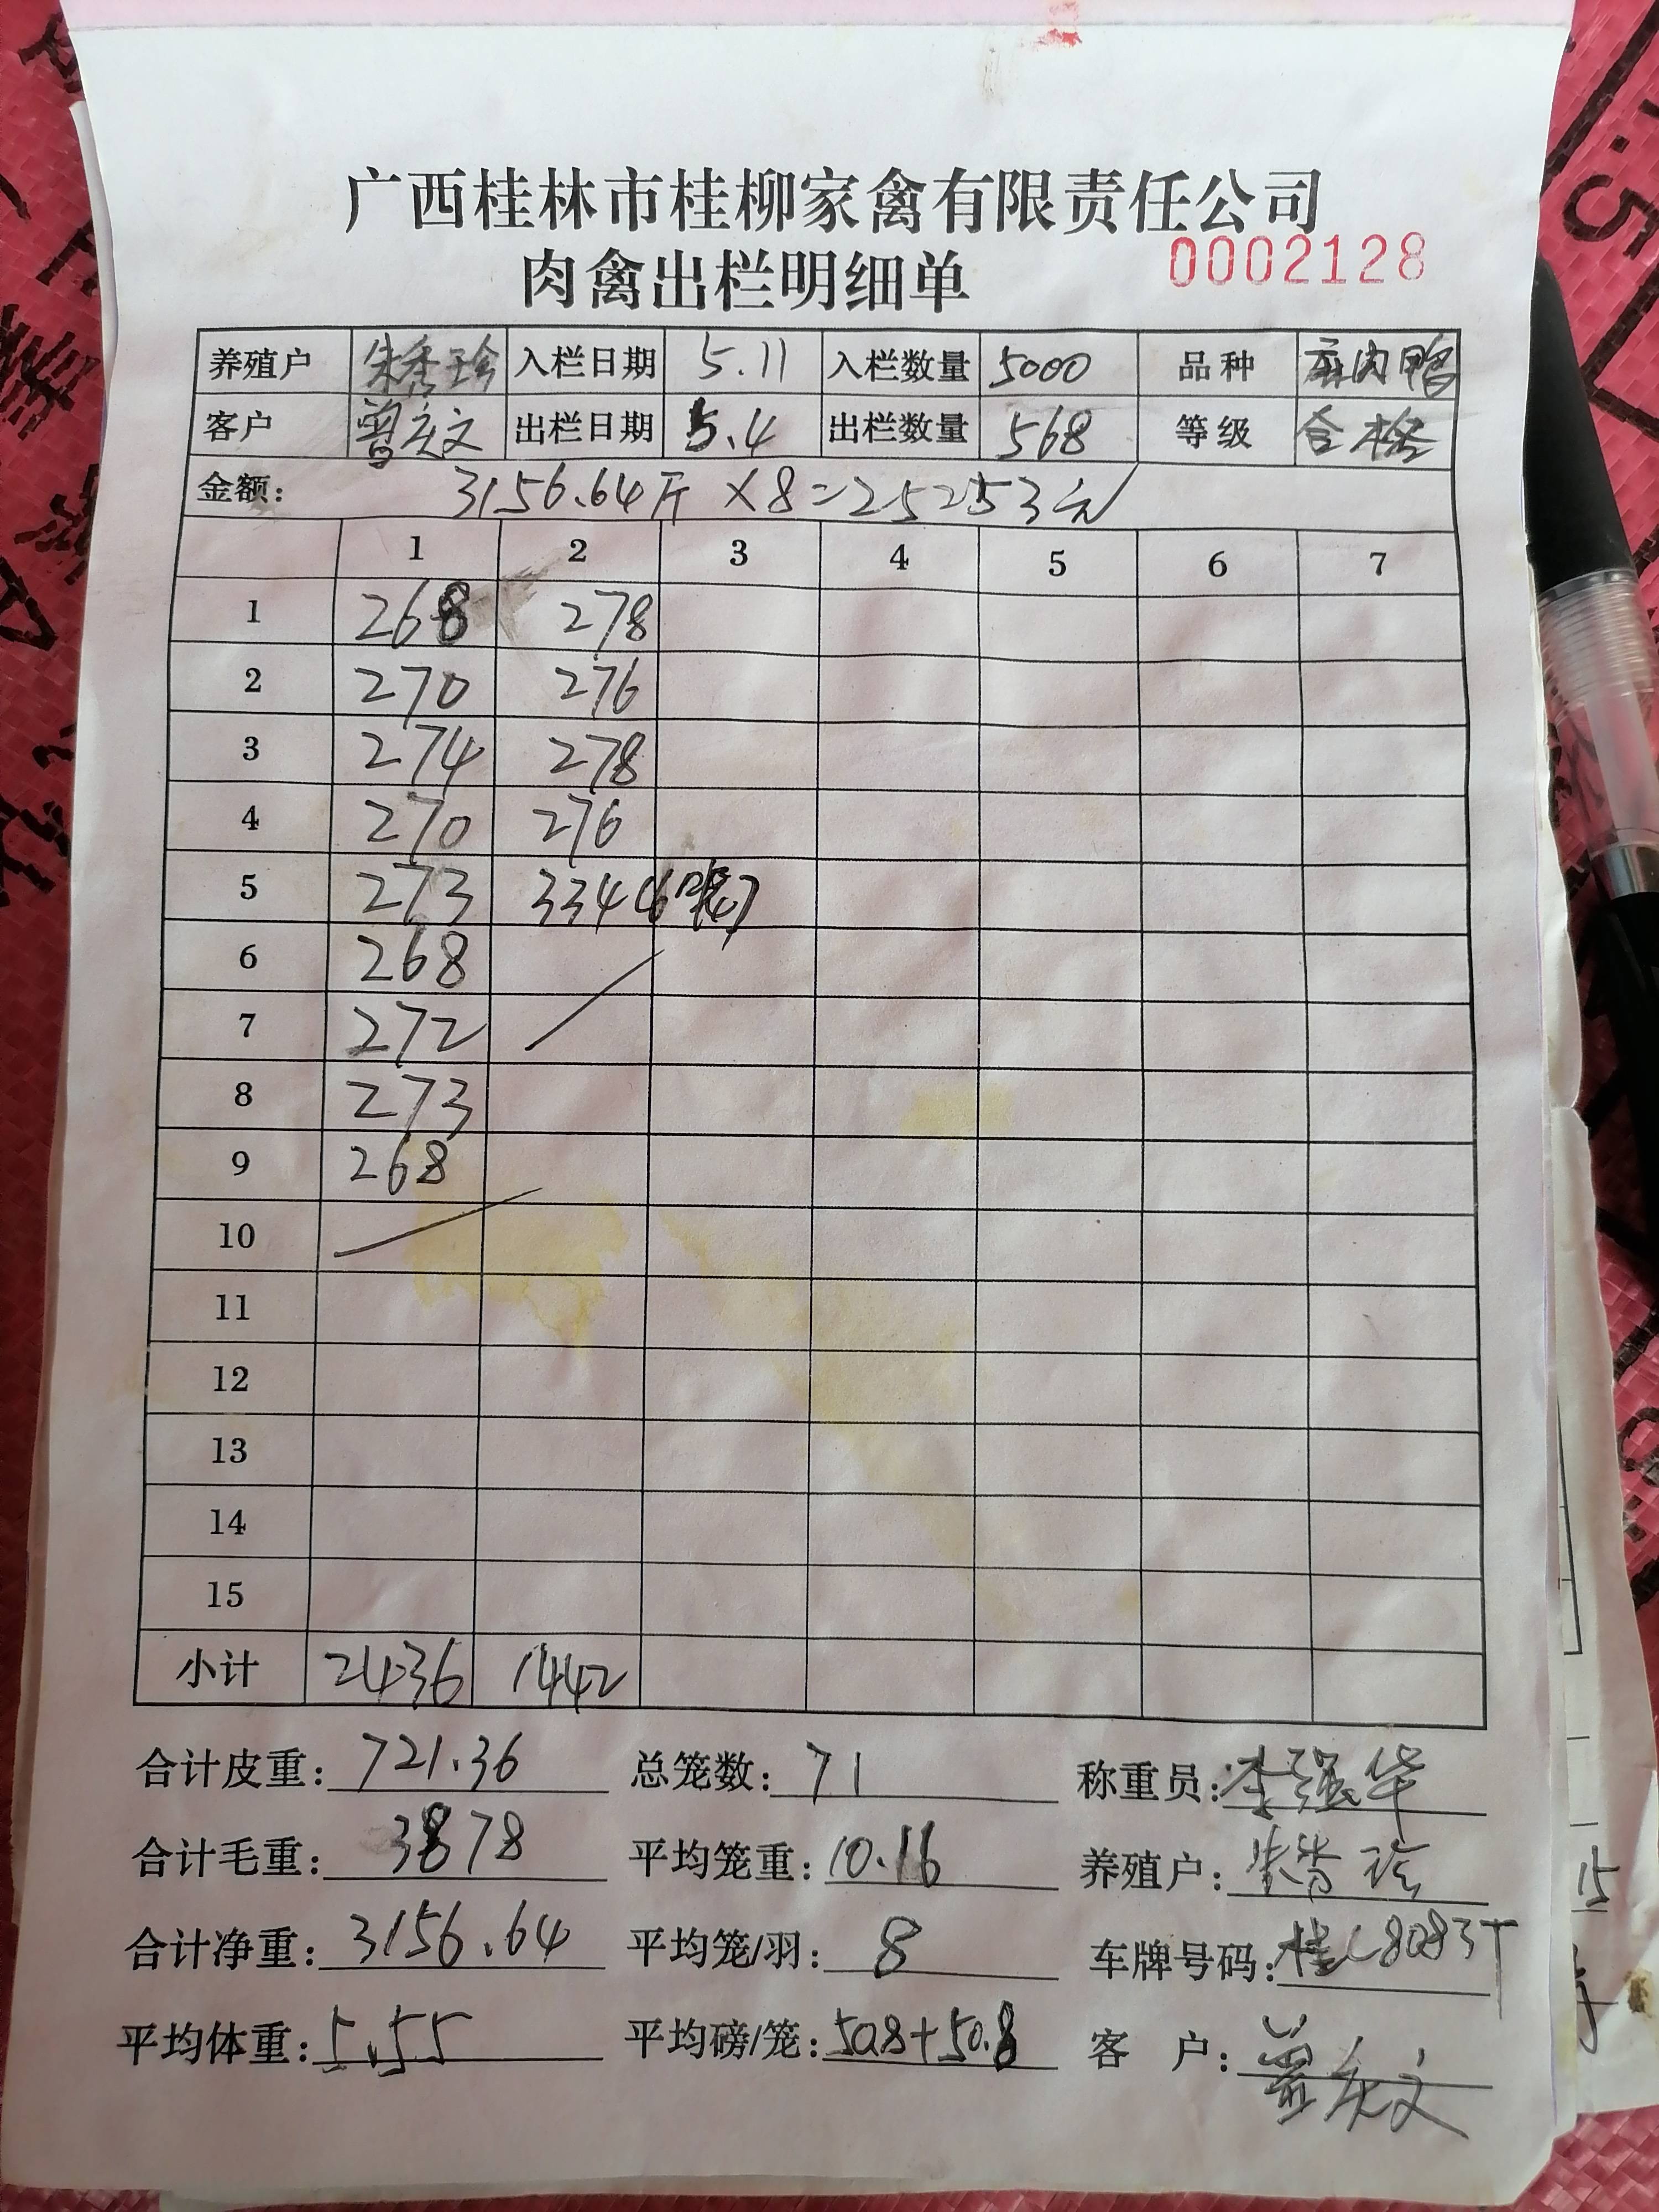 广西桂林市桂柳家禽有限责任公司
肉禽出栏明细单 0002128
养殖户 朱秀珍 入栏日期 5.11 入栏数量 5000 品种 麻肉鸭
客户 曾庆文 出栏日期 5.4 出栏数量 568 等级 合格
金额: 3156.64斤×8=25253元
1 2 3 4 5 6 7
1 268 278
2 270 276
3 274 278
4 270 276
5 273 334(6
6 268
7 272
8 273
9 268
10
11
12
13
14
15
小计 2436 1442
合计皮重: 721.36 总笼数: 71 称重员: 李强华
合计毛重: 3878 平均笼重: 10.16 养殖户: 朱秀珍
合计净重: 3156.64 平均笼/羽: 8 车牌号码: 桂C8083T
平均体重: 5.55 平均磅/笼: 50.8+50.8 客户: 曾庆文
15